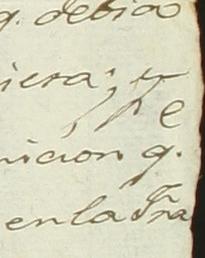 q. debia
iera; y
e
nicion q.
en la Fra